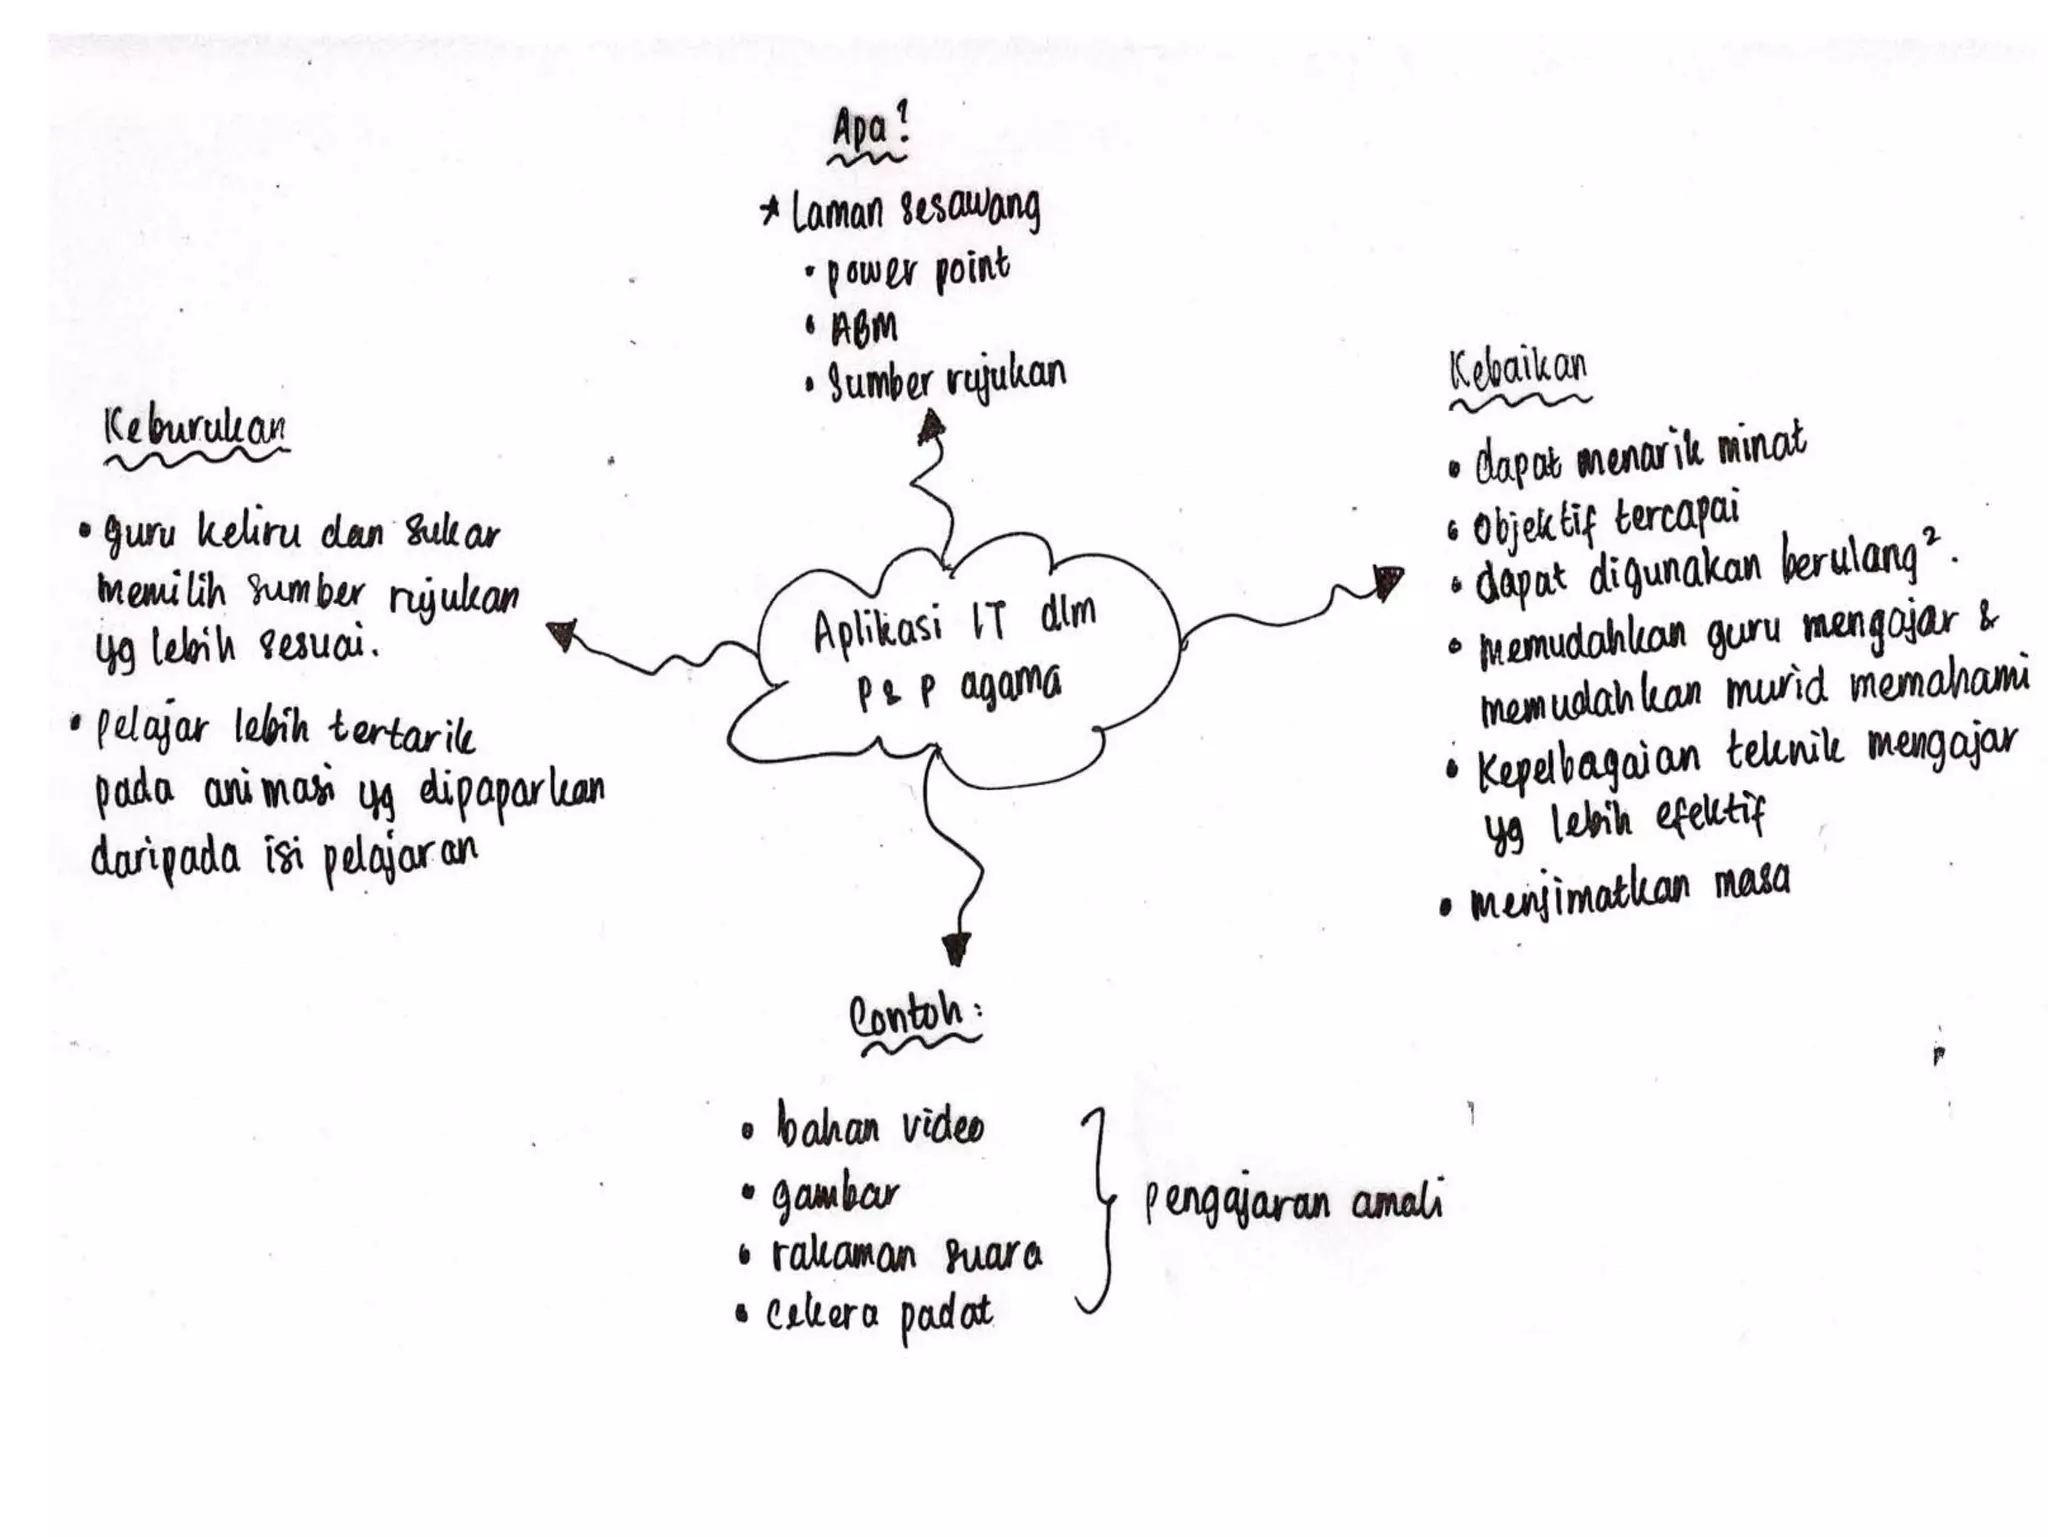 Apa?
* Laman sesawang
• power point
• ABM
• Sumber rujukan
Keburukan
• guru keliru dan sukar
memilih sumber rujukan
yg lebih sesuai.
• pelajar lebih tertarik
pada animasi yg dipaparkan
daripada isi pelajaran
Aplikasi IT dlm
P & P agama
Kebaikan
• dapat menarik minat
• Objektif tercapai
• dapat digunakan berulang².
• memudahkan guru mengajar &
memudahkan murid memahami
• Kepelbagaian teknik mengajar
yg lebih efektif
• menjimatkan masa
Contoh:
• bahan video
• gambar
• rakaman suara
• cekera padat
pengajaran amali